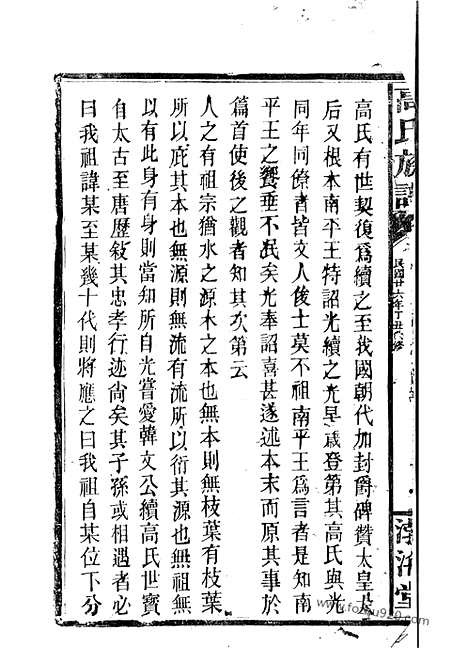 高氏族譜
民國廿六年丁丑
渤海堂
高氏有世契復爲續之至我國朝代加封爵碑贊太皇太
后又根本南平王特詔光續之光早歲登第其高氏與光
同年同僚者皆文人俊士莫不祖南平王爲言者是知南
平王之饗垂不泯矣光奉詔喜甚遂述本末而原其事於
篇首使後之觀者知其次第云
人之有祖宗猶水之源木之本也無本則無枝葉有枝葉
所以庇其本也無源則無流有流所以衍其源也無祖無
以有此身有身則當知所自光嘗愛韓文公續高氏世寳
自太古至唐歷敍其忠孝行迹尚矣其子孫或相遇者必
曰我祖諱某至某幾十代則將應之曰我祖自某位下分